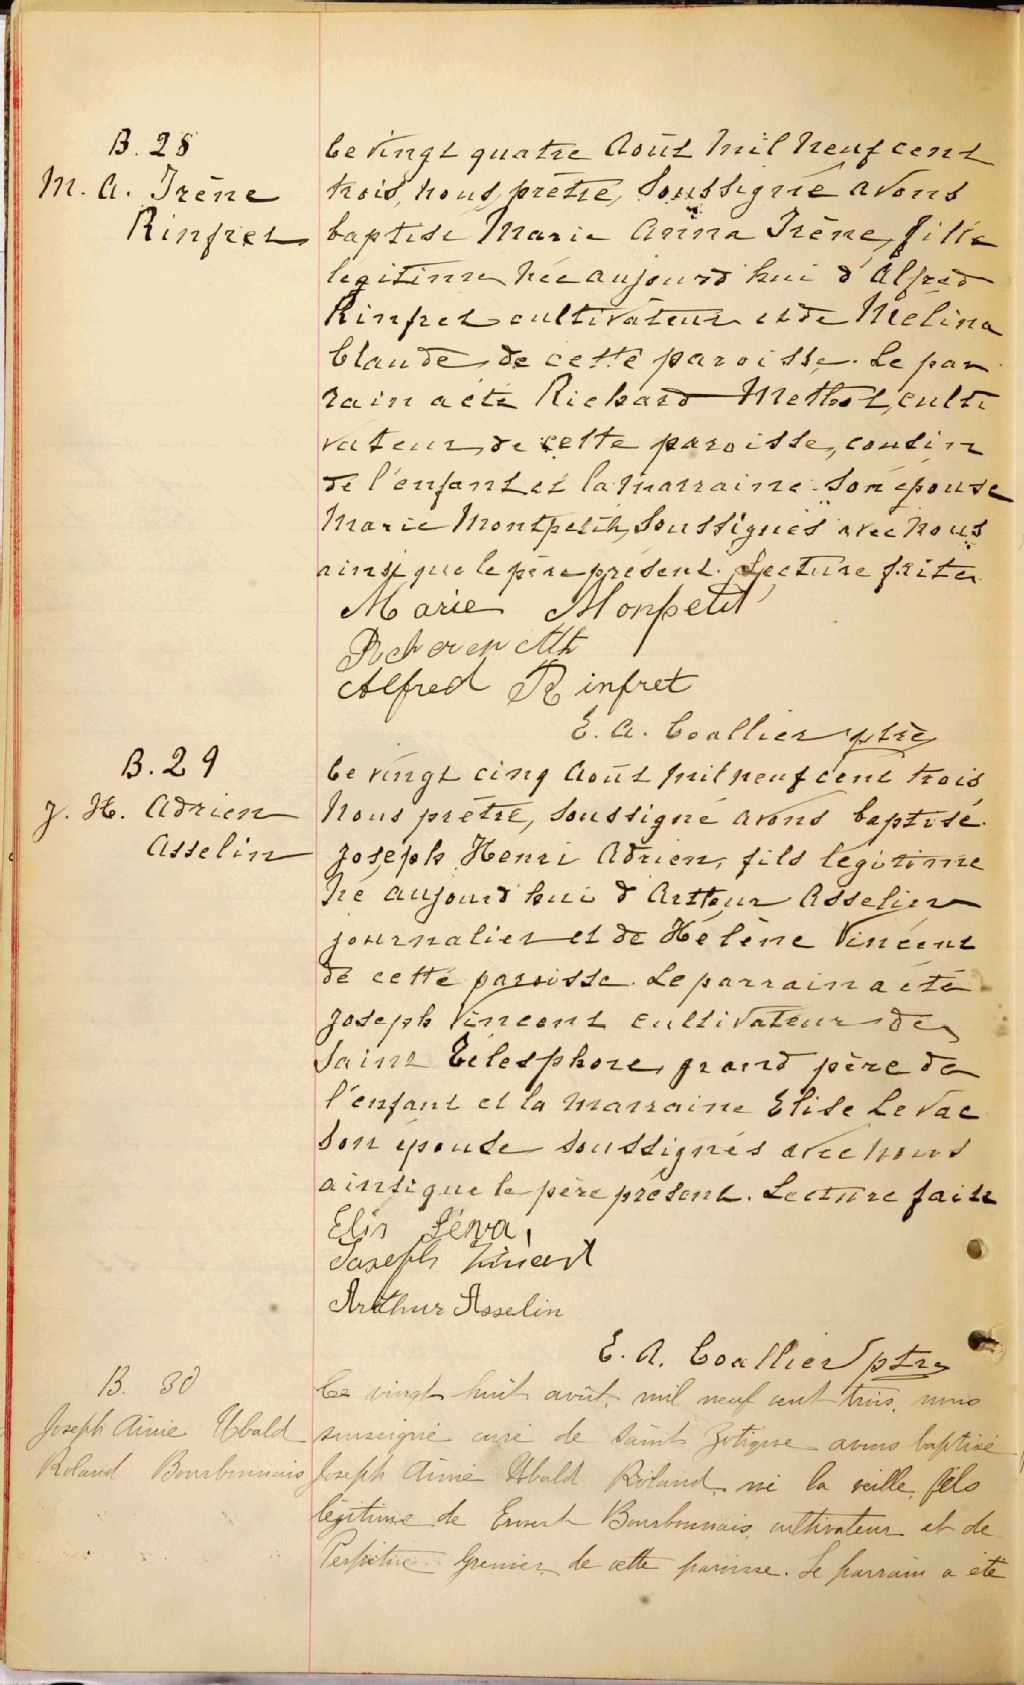 B. 28
M. A. Irène
Rinfret
Ce vingt quatre Août mil neuf cent
trois, nous, prêtre, soussigné avons
baptisé Marie Anna Irène, fille
légitime née aujourd'hui d'Alfred
Rinfret cultivateur et de Mélina
Claude de cette paroisse. Le par
rain a été Richard Methot, culti
vateur de cette paroisse, cousin
de l'enfant et la marraine son épouse
Marie Montpetit, soussignés avec nous
ainsi que le père présent. Lecture faite.
Marie Monpetit
Alfred Rinfret
E. A. Coallier ptre
B. 29
J. H. Adrien
Asselin
Ce vingt cinq Août mil neuf cent trois
nous prêtre, soussigné avons baptisé
Joseph Henri Adrien, fils légitime
né aujourd'hui d'Arthur Asselin
journalier et de Hélène Vincent
de cette paroisse. Le parrain a été
Joseph Vincent cultivateur de
Saint Télesphore, grand père de
l'enfant et la marraine Elise Levac
son épouse soussignés avec nous
ainsi que le père présent. Lecture faite
Joseph Vincent
Arthur Asselin
E. A. Coallier ptre
B. 30
Joseph Aimé Ubald
Roland Bourbonnais
Ce vingt huit août, mil neuf cent trois, nous
soussigné curé de Saint Zotique avons baptisé
Joseph Aimé Ubald Roland, né la veille, fils
légitime de Ernest Bourbonnais, cultivateur et de
Grenier, de cette paroisse. Le parrain a été